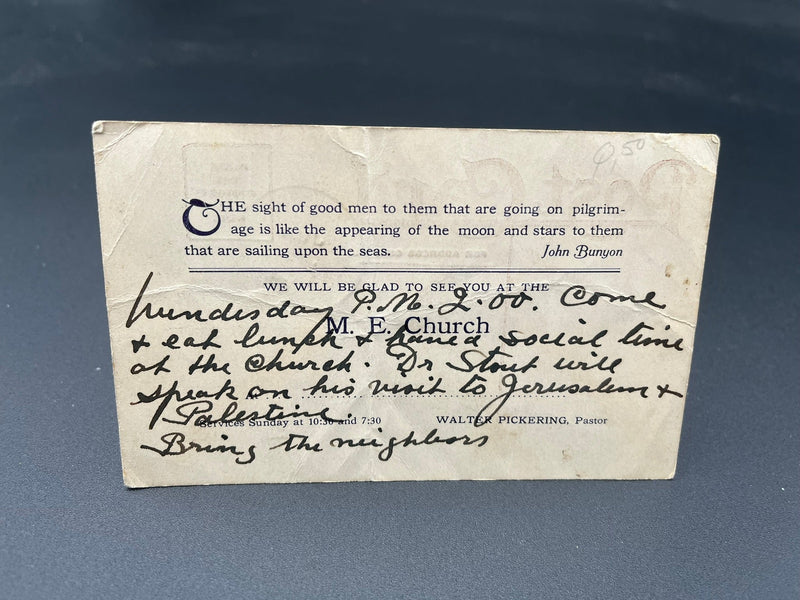 9.50
THE sight of good men to them that are going on pilgrim-
age is like the appearing of the moon and stars to them
that are sailing upon the seas. John Bunyon
WE WILL BE GLAD TO SEE YOU AT THE
Wendisday P.M. 2.00. Come
M. E. Church
& eat lunch & have a social time
at the Church. Dr Stout will
speak on his visit to Jerusalem &
Palestine.
Services Sunday at 10:30 and 7:30 WALTER PICKERING, Pastor
Bring the neighbors